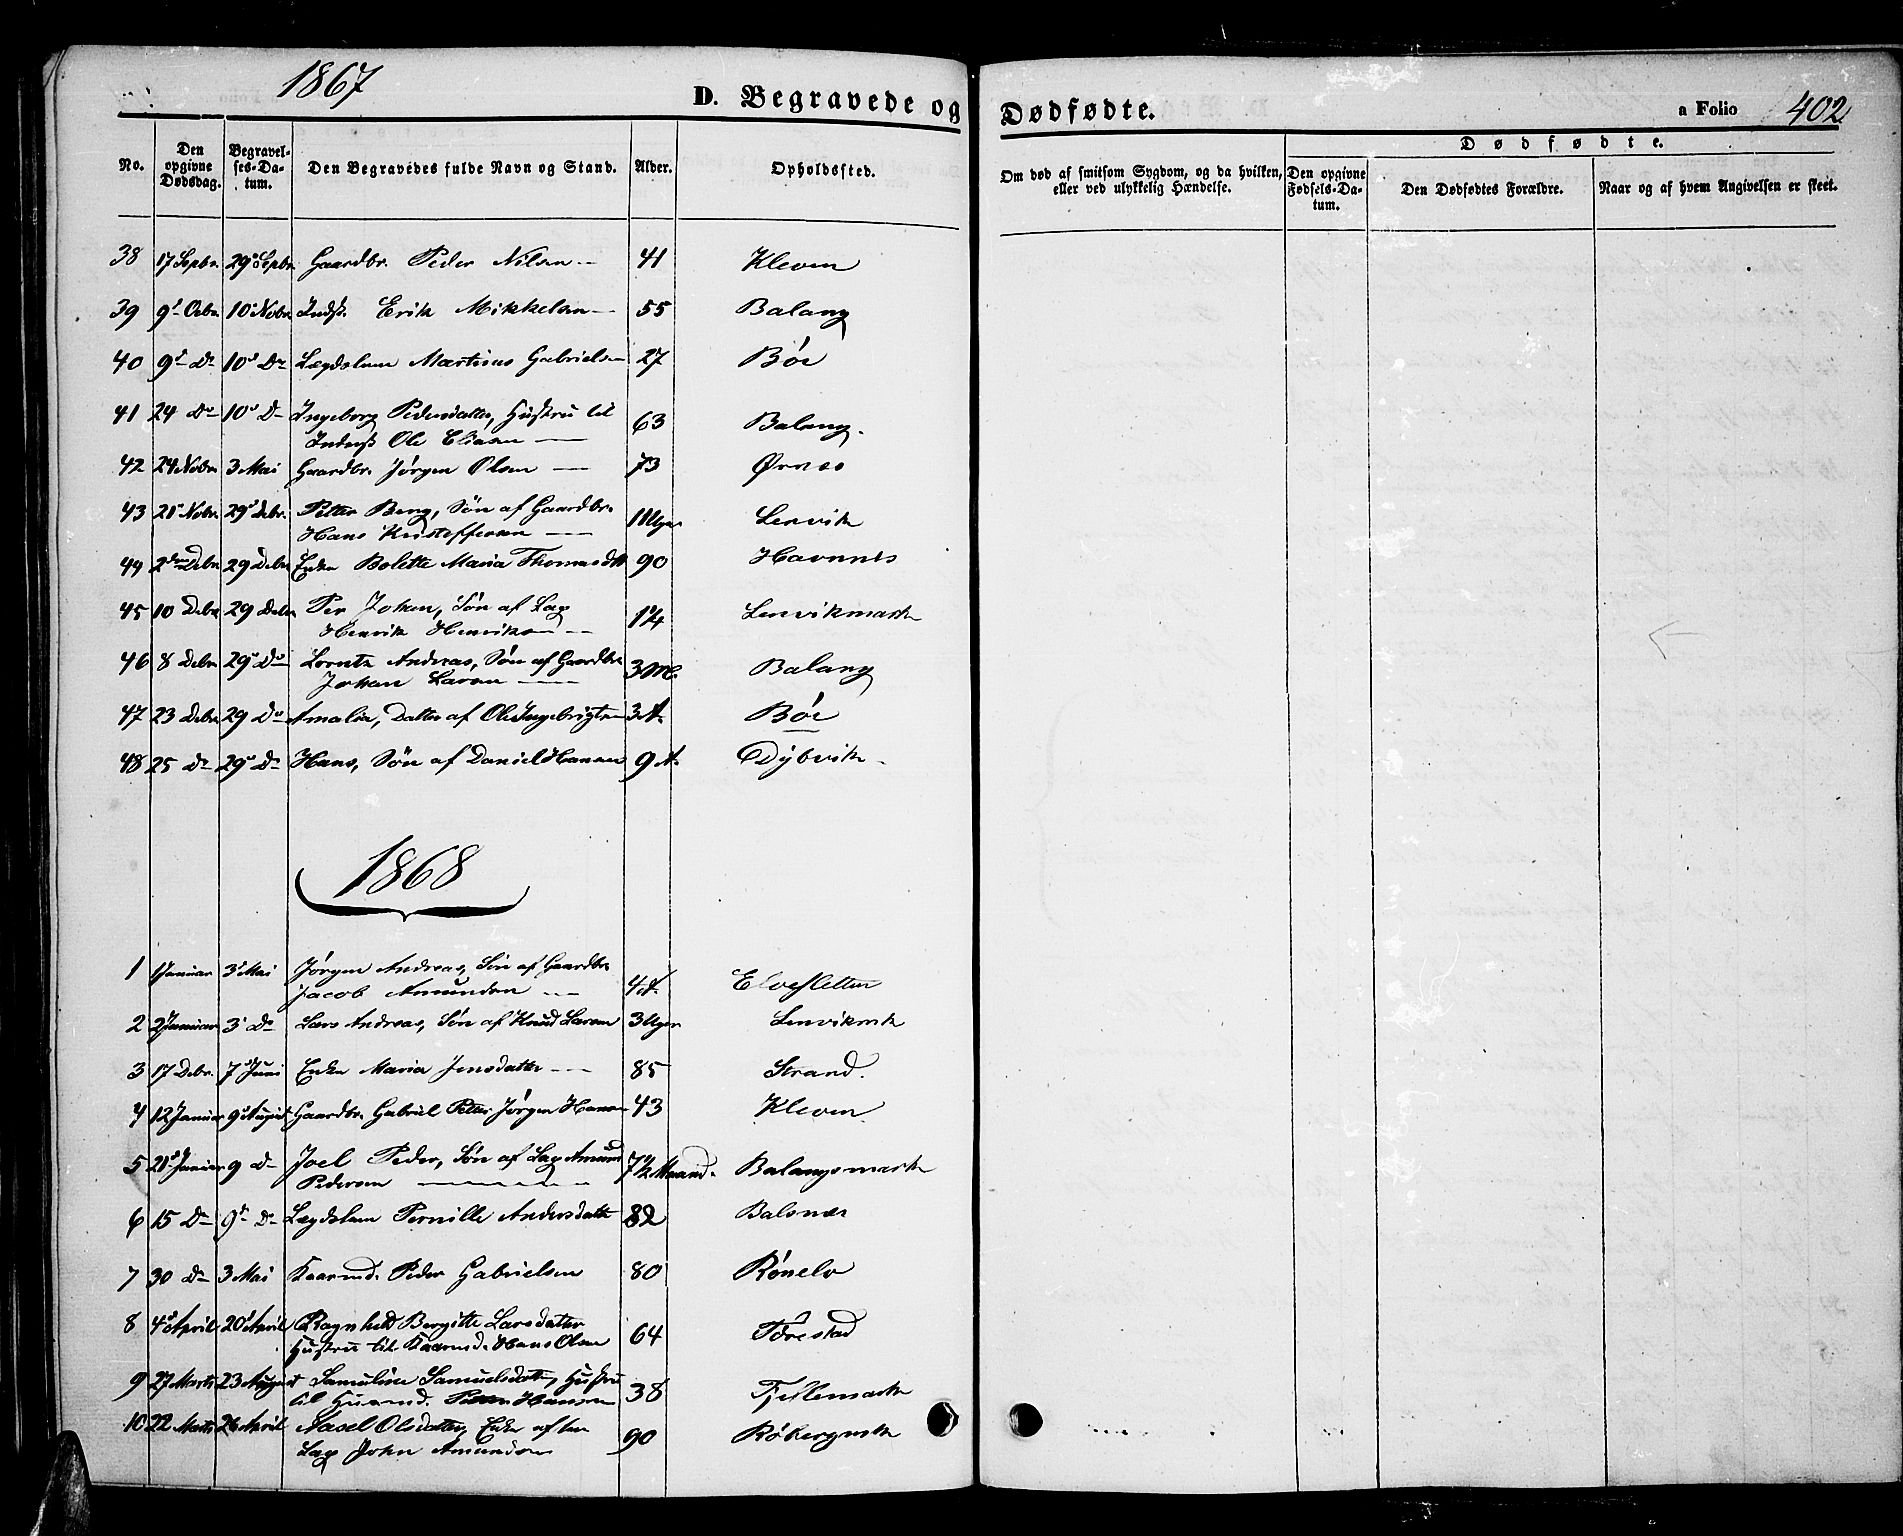 1867
D. Begravede og Dødfødte.
a Folio 402
No.
Den opgivne Dødsdag.
Begravelses-Datum.
Den Begravedes fulde Navn og Stand.
Alder.
Opholdssted.
Om død af smitsom Sygdom, og da hvilken, eller ved ulykkelig Hændelse.
Dødfødte.
Den opgivne Fødsels-Datum.
Den Dødfødtes Forældre.
Naar og af hvem Angivelsen er skeet.
38 17 Sepbr. 29 Sepbr. Gaardbr. Peder Nilsen 41 Kleven
39 9 Octbr. 10 Nobr. Indst. Erik Mikkelsen 55 Balang
40 9 Do 10 Do Lægdslem Martinus Gabrielsen 27 Bøe
41 24 Do 10 Do Ingeborg Pedersdatter, Hustru til
Inderst Ole Eliasen 63 Balang.
42 24 Nobr. 3 Mai Gaardbr. Jørgen Olsen 73 Ørnes
43 21 Nobr. 29 Debr. Petter Berg, Søn af Gaardbr.
Hans Kristoffersen 1 Uger Lenvik
44 2 Debr. 29 Debr. Enke Bolette Maria Thomasdtt 90 Havnnes
45 10 Debr. 29 Debr. Per Johan, Søn af Lap
Henrik Henriksen 1 1/4 Lenvikmark
46 8 Debr. 29 Do Lorentz Andreas, Søn af Gaardbr.
Johan Larsen 3 M. Balang
47 23 Debr. 29 Do Amalia, Datter af Ole Ingebrigtsen 3 A. Bøe
48 25 Do 29 Do Hans, Søn af Daniel Hansen 9 A. Dybvik
1868
1 1 Januar 3 Mai Jørgen Andreas, Søn af Gaardbr.
Jacob Amundsen 4 A. Elvesletten
2 2 Januar 3 Do Lars Andreas, Søn af Knud Larsen 3 Uger Lenvikmrk
3 17 Debr. 7 Juni Enke Maria Jensdatter 85 Strand.
4 12 Januar 9 August Gaardbr. Gabriel Petter Jørgen Hansen 43 Kleven
5 21 Januar 9 Do Joel Peder, Søn af Lap Amund
Pedersen 7 1/2 Maaned. Balangsmark
6 15 Do 9 Do Lægdslem Pernille Andersdatter 82 Balsnæs
7 30 Do 3 Mai Kaarmd. Peder Gabrielsen 80 Rønelv
8 4 April 20 April Ragnhild Bergitte Larsdatter
Hustru til Kaarmd. Hans Olsen 64 Tørestad
9 27 Marts 23 August Samuline Samuelsdatter, Hustru
til Huusmd. Peder Hansen 38 Fjellemark
10 22 Marts 26 April Aasel Olsdatter, Enke efter
Lap John Amundsen 90 Røbergmrk